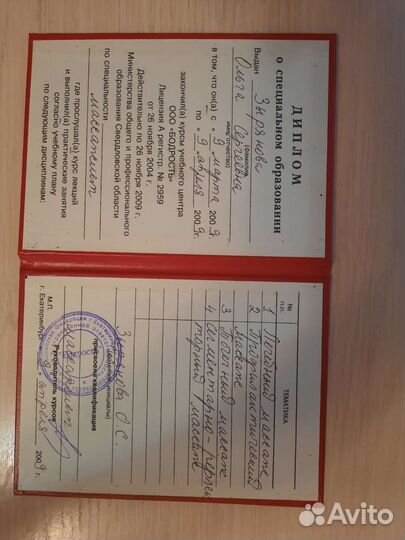 ДИПЛОМ
о специальном образовании
Выдан Зырянова
фамилия
Ольга Сергеевна
имя, отчество
в том, что он(а) с «9» марта 2009г.
по «9» апреля 2009г.
закончил(а) курсы учебного центра
ООО «БОДРОСТЬ»
Лицензия А регистр. № 2959
от 26 ноября 2004 г.
Действительно по 26 ноября 2009 г.
Министерства общего и профессионального
образования Свердловской области
по специальности
массажист
где прослушал(а) курс лекций
и выполнил(а) практические занятия
согласно учебному плану
по следующим дисциплинам:
№ п.п. ТЕМАТИКА
1 Лечебный массаж
2 Антицеллюлитный
массаж
3 Точечный массаж
4 Сегментарно-рефлек
торный массаж
Зырянова О.С.
(фамилия, инициалы)
присвоена квалификация
массажист
Руководитель курсов
М.П.
г. Екатеринбург «9» апреля 2009г.
Avito